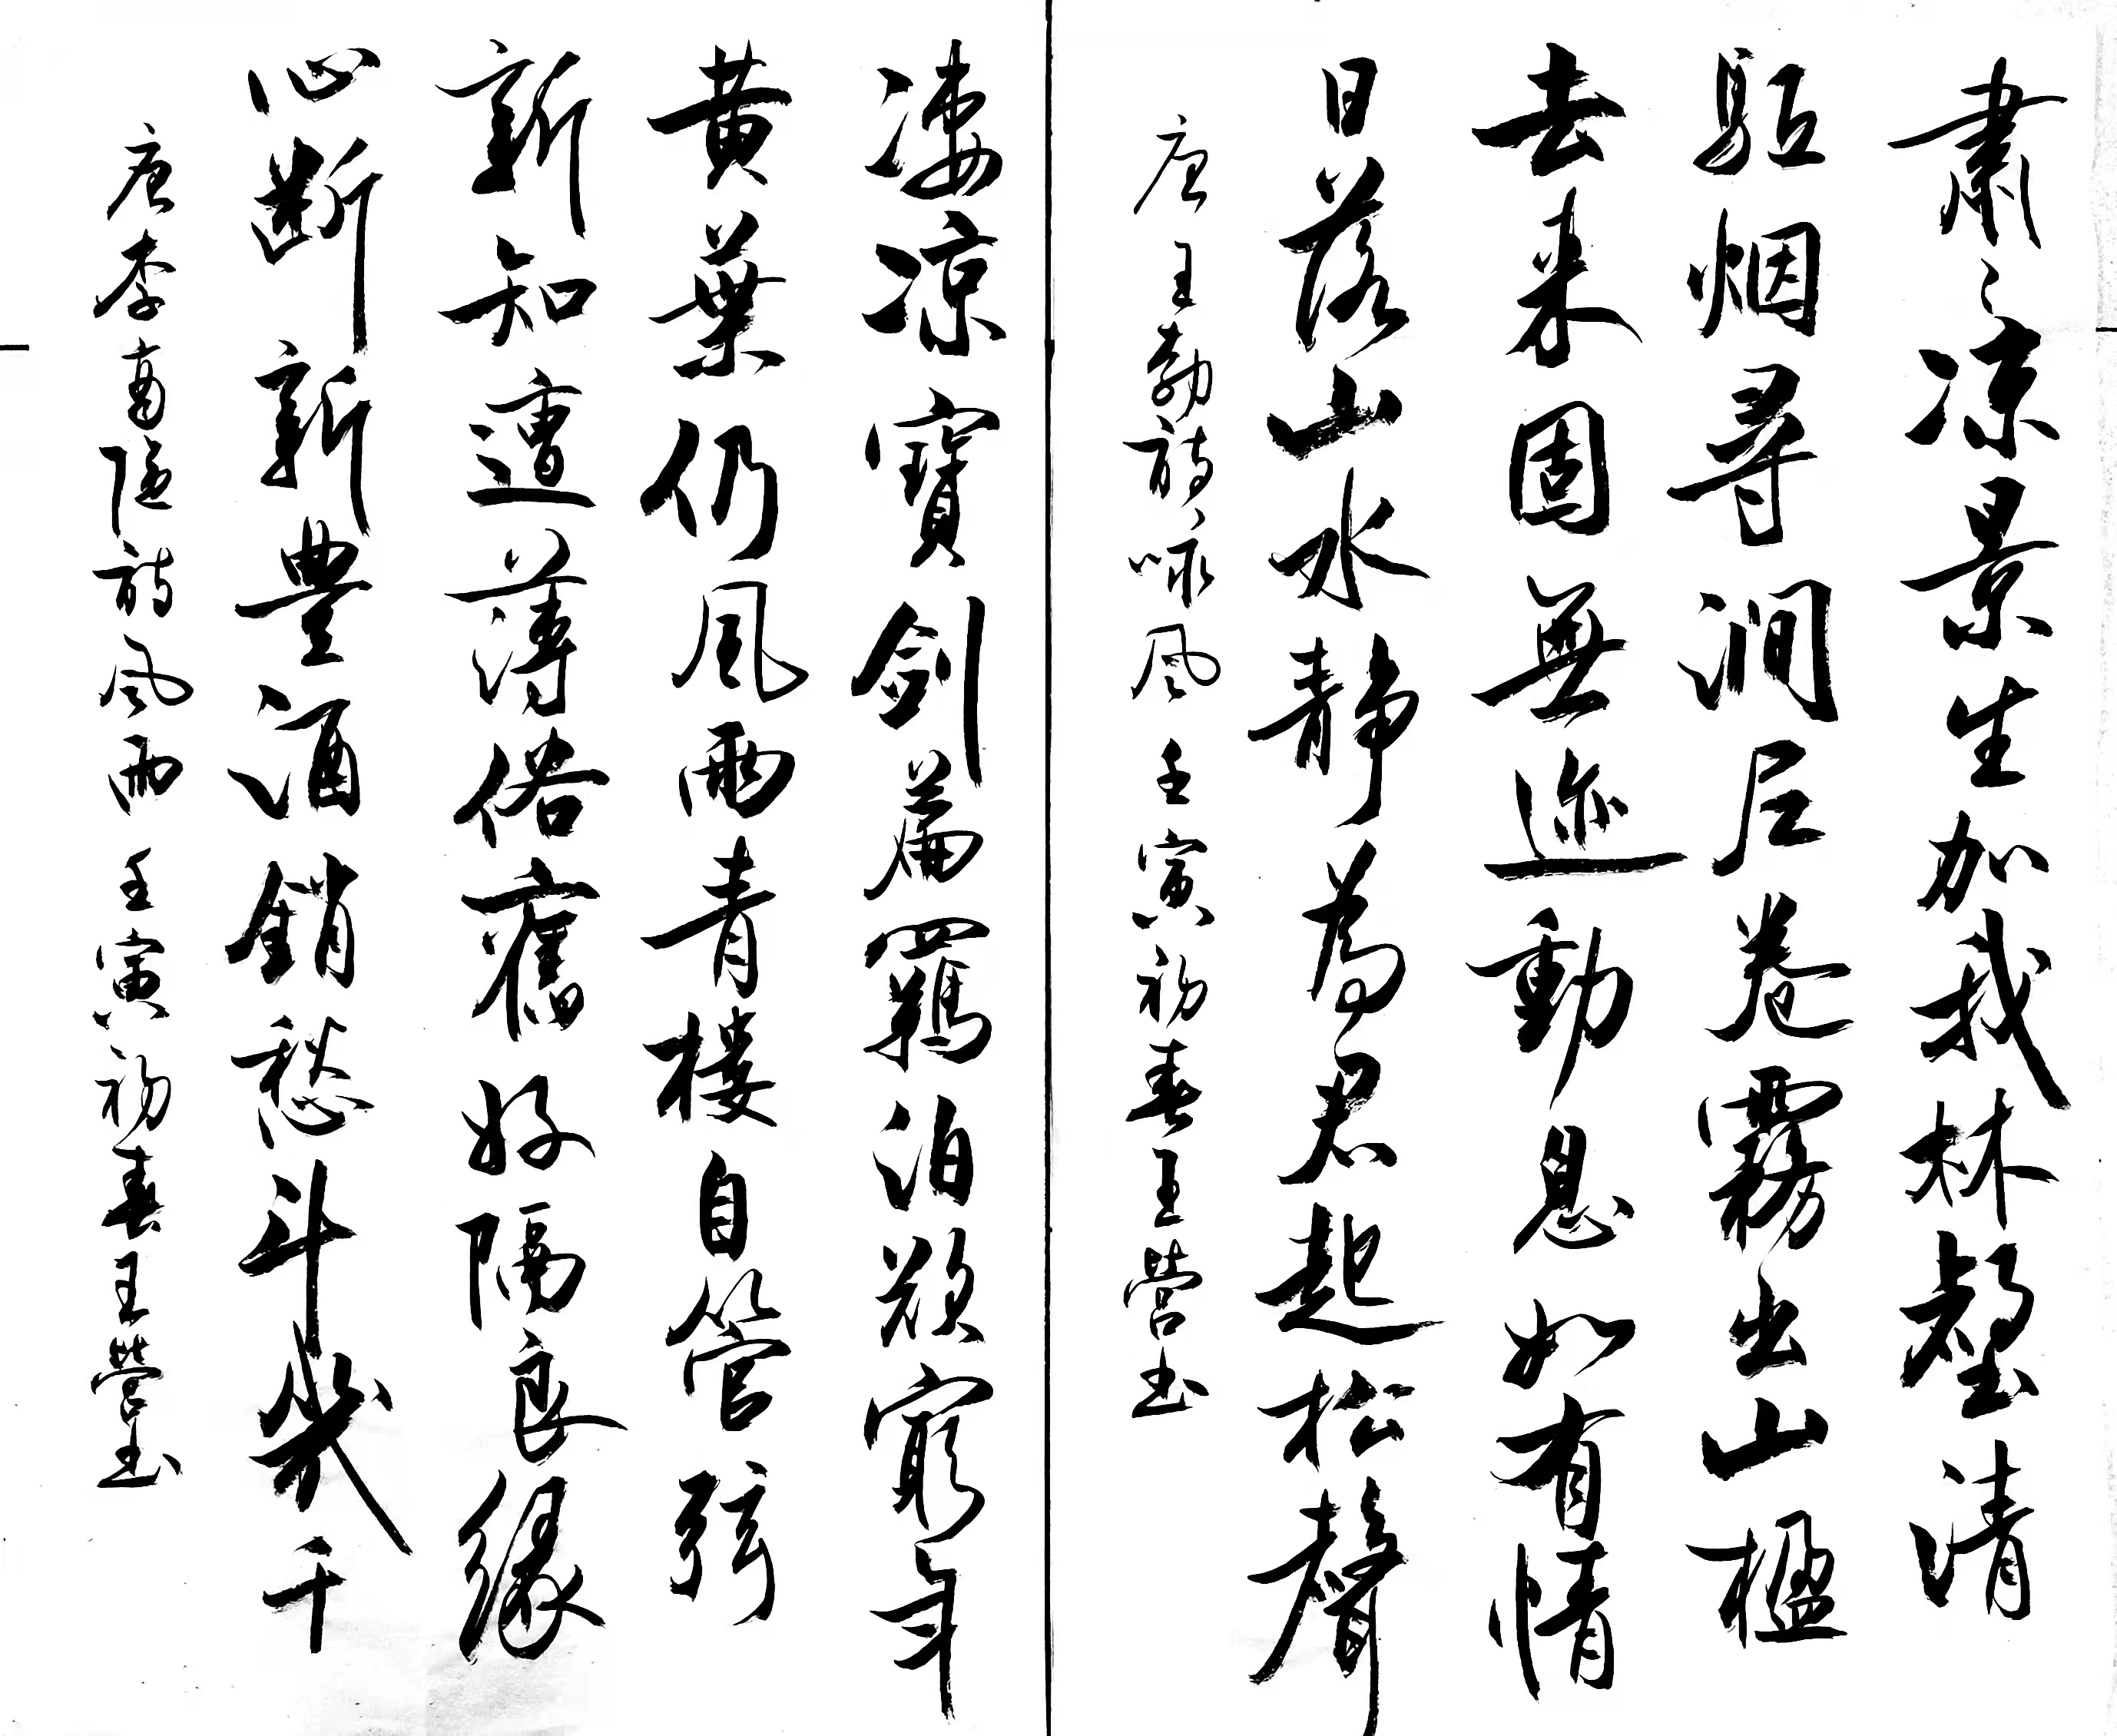 肅〻凉景生加我林壑清
駈烟尋澗戶卷霧出山楹
去来固無迹動息如有情
日落山水静為君起松聲
唐王勃詩咏風 壬寅初春王營书
凄凉寶劍篇羈泊欲窮年
黄葉仍風雨青楼自管弦
新知遭薄俗舊好隔良緣
心断新豊酒銷愁斗幾千
唐李商隐詩風雨 壬寅初春王營书